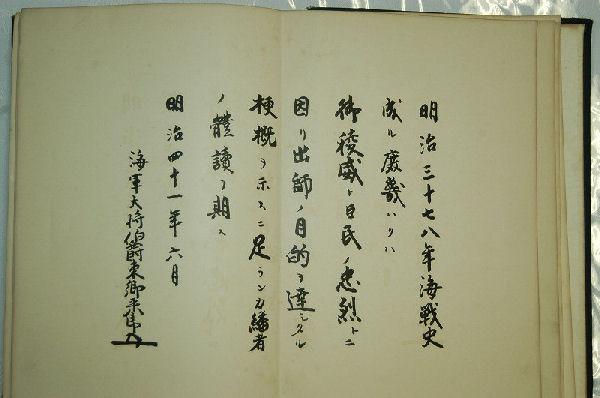 明治三十七八年海戰史
成ル庶幾ハクハ
御稜威ト臣民ノ忠烈トニ
因リ出師ノ目的ヲ達シタル
梗概ヲ示スニ足ランカ繙者
ノ體讀ヲ期ス
明治四十一年六月
海軍大将伯爵東郷平八郎